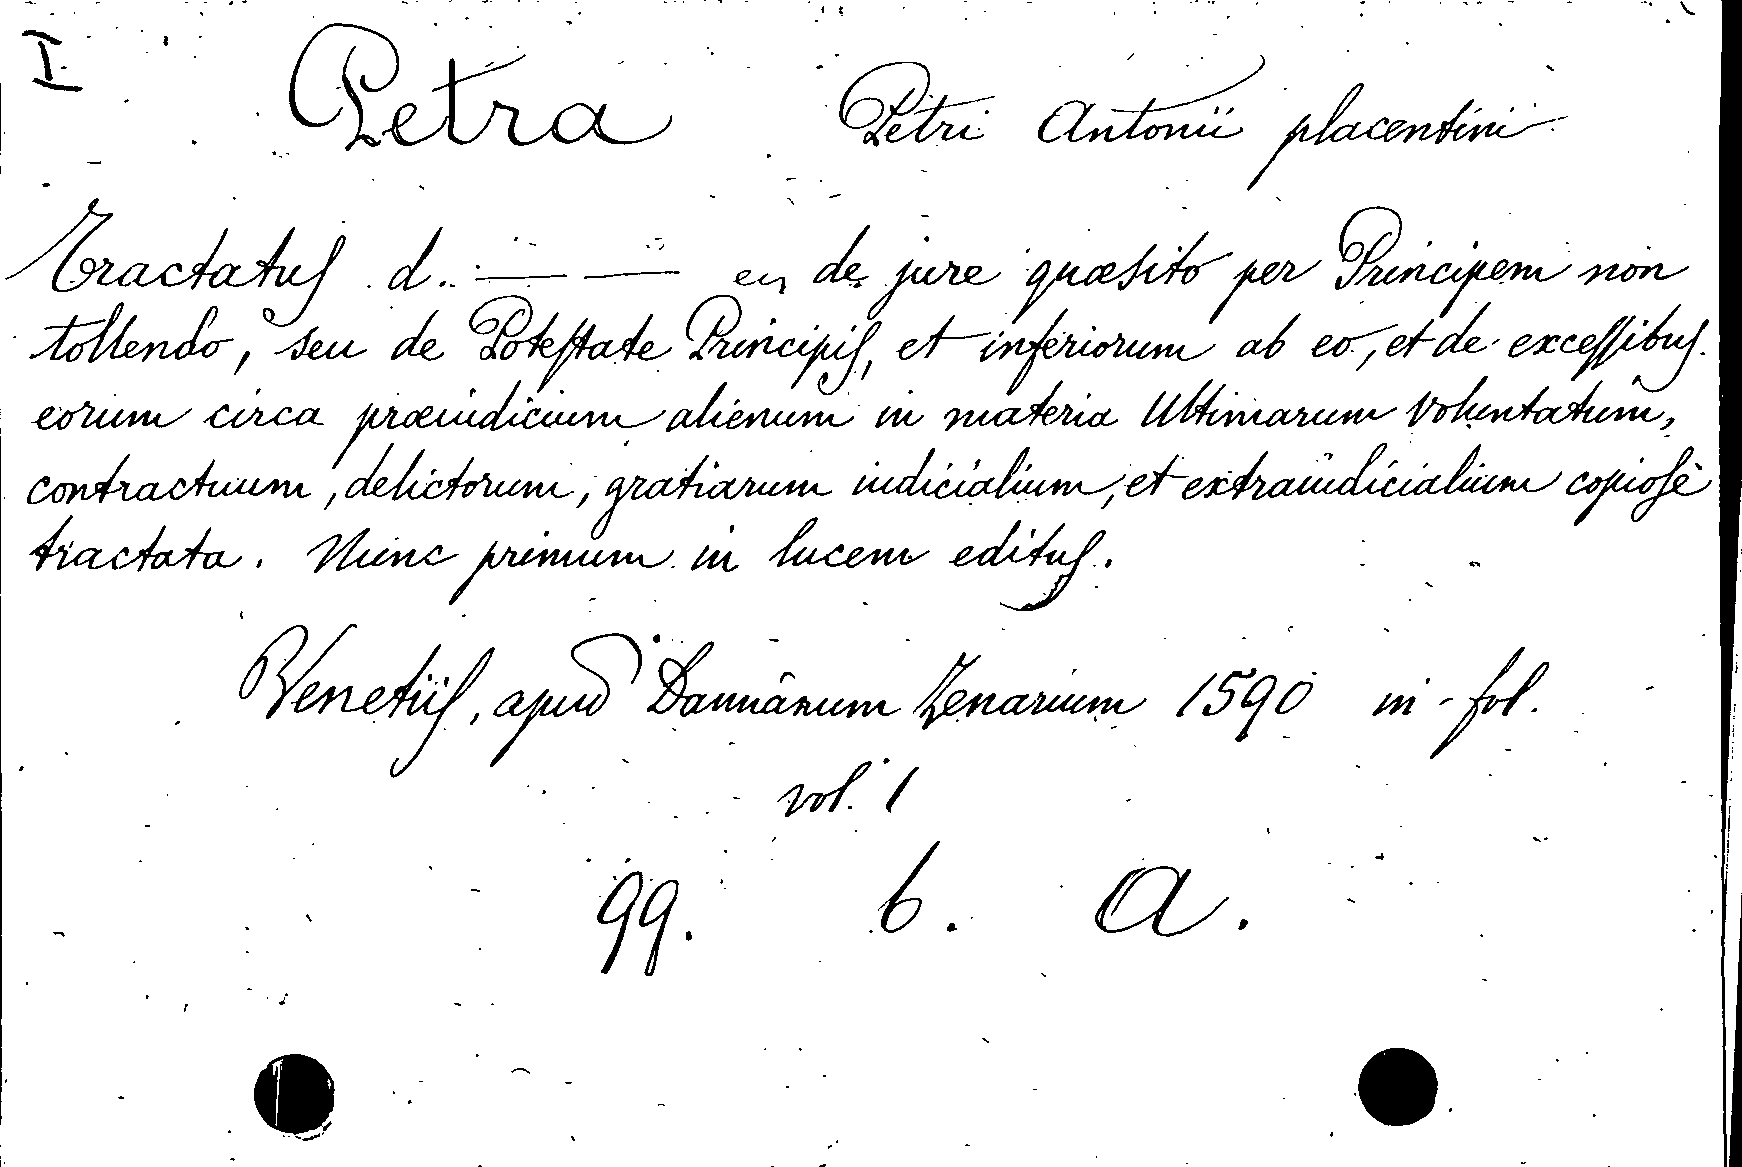 I
Petra Petri Antonii placentini
Tractatus d. — — de jure quæsito per Principem non
tollendo, seu de Potestate Principis, et inferiorum ab eo, et de excessibus
eorum circa præiudicium alienum in materia Ultimarum Voluntatum,
contractuum, delictorum, gratiarum iudicialium, et extraiudicialium copiosè
tractata. Nunc primum in lucem editus.
Venetiis, apud Damianum Zenarium 1590 in-fol.
vol. 1
99. 6. A.